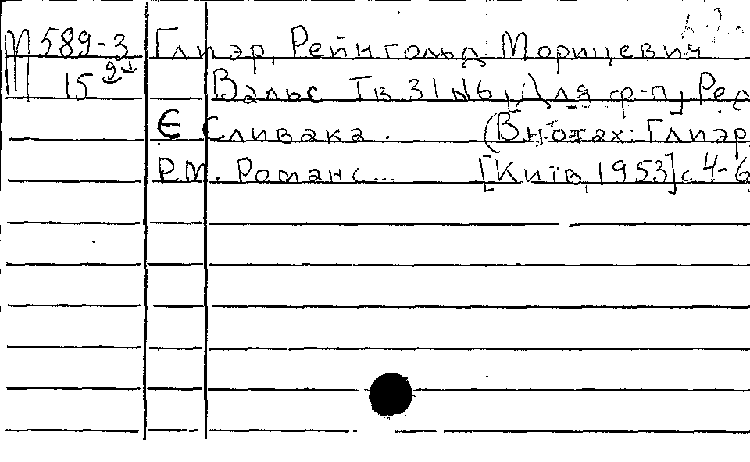 М 589-3 Глиэр, Рейнгольд Морицевич
15 Вальс Тв. 31 №6, Для ф-п, Ред
Є Сливака. (В нотах: Глиэр
Р.М. Романс... [Київ, 1953] с 4-6